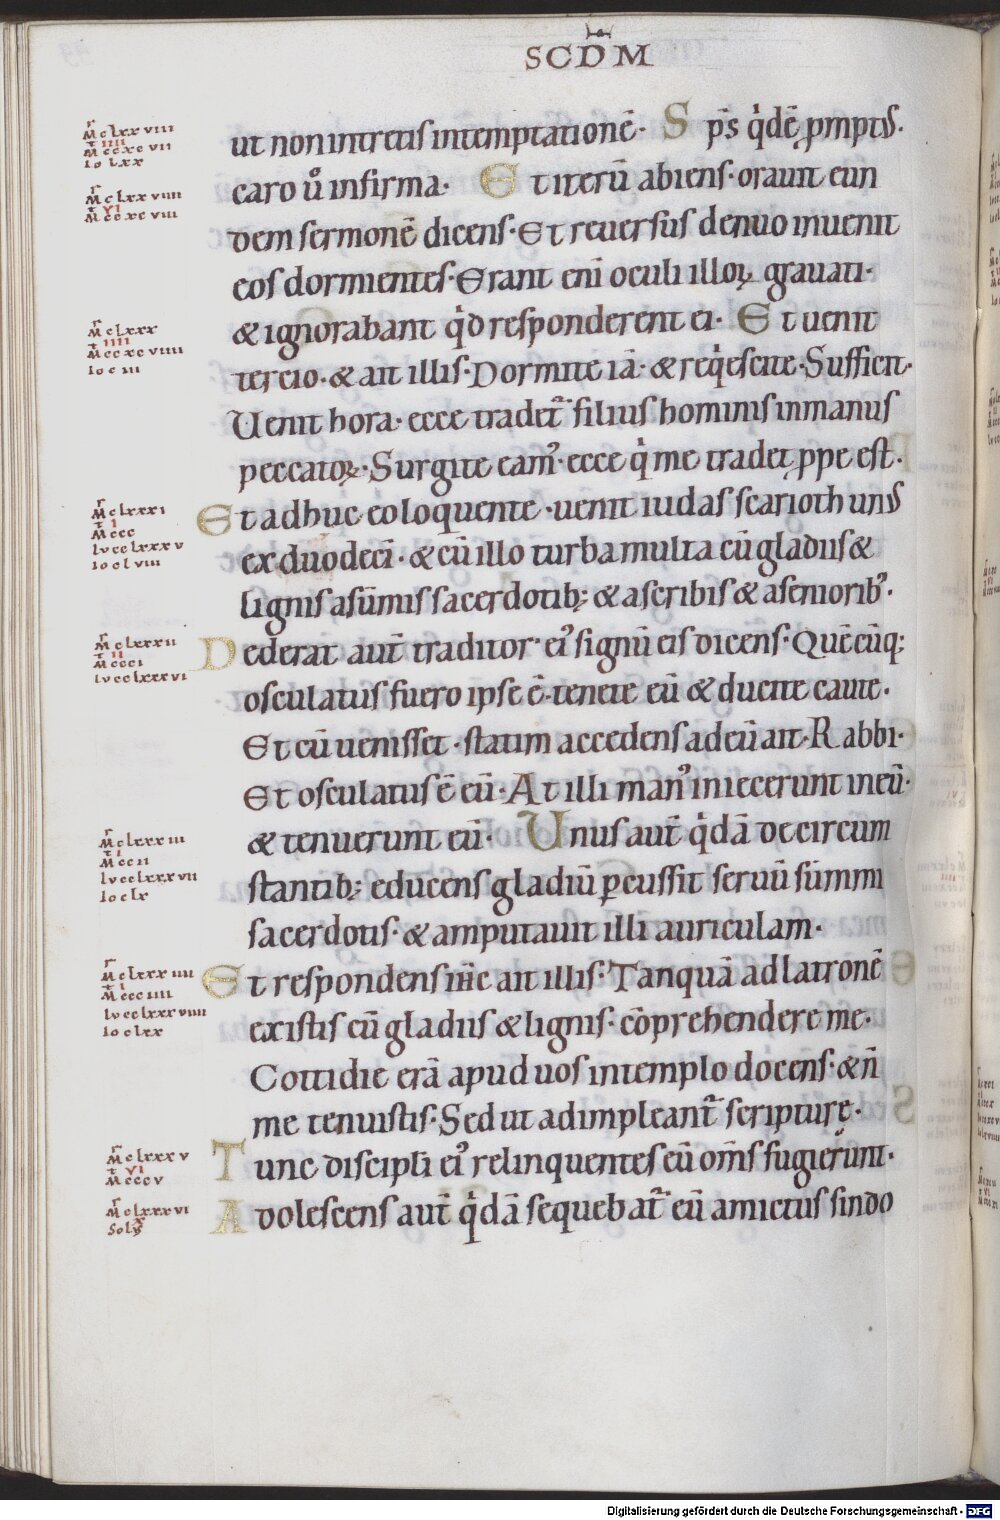 SCDM
ut non intretis in temptationē· Sp̄s q̇dē ꝓmptꝰ·
caro ů infirma· Et iterū abiens· orauit eun
dem sermonē dicens· Et reuersus denuo inuenit
eos dormientes· Erant enī oculi illoꝝ grauati·
& ignorabant q̇d responderent ei· Et uenit
tercio· & ait illis· Dormite iā· & req̇escite· Sufficit·
Uenit hora· ecce tradet᷑ filius hominis in manus
peccatoꝝ· Surgite eamꝰ· ecce q̇ me tradet ꝓpe est·
Et adhuc eo loquente· uenit iudas scarioth unꝰ
ex duodecī· & cū illo turba multa cū gladiis &
lignis a sūmis sacerdotib; & a scribis & a seniorib'·
Dederat aut̄ traditor eiꝰ signū eis dicens· Quēcūq;
osculatus fuero ipse ē· tenete eū & ducite caute·
Et cū uenisset· statim accedens ad eū ait· Rabbi·
Et osculatus ē eū· At illi manꝰ iniecerunt in eū·
& tenuerunt eū· Unus aut̄ q̇dā de circum
stantib; educens gladiū ꝑcussit seruū sūmi
sacerdotis· & amputauit illi auriculam·
Et respondens ih̄c ait illis· Tanquā ad latronē
existis cū gladiis & lignis· cōprehendere me·
Cottidie erā apud uos in templo docens· & n̄
me tenuistis· Sed ut adimpleant᷑ scripturę·
Tunc discipli eiꝰ relinquentes eū om̄s fugierunt·
Adolescens aut̄ q̇dā sequebat᷑ eū amictus sindo
M clxx viii
iiii
M ccxc vii
Io lxx
M clxx viiii
vi
M ccxc viii
M clxxx
iiii
M ccxc viiii
Io c iii
M clxxxi
i
M ccc
Lu cclxxx v
Io cl viii
M clxxxii
ii
M ccci
Lu cclxxx vi
M clxxx iii
i
M cc ii
Lu cclxxx vii
Io clx
M clxxx iiii
i
M ccc iiii
Lu cclxxx viiii
Io clxx
M clxxx v
vi
M ccc v
M clxxx vi
Digitalisierung gefördert durch die Deutsche Forschungsgemeinschaft - DFG